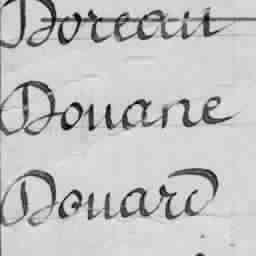 Doreau
Douane
Douard